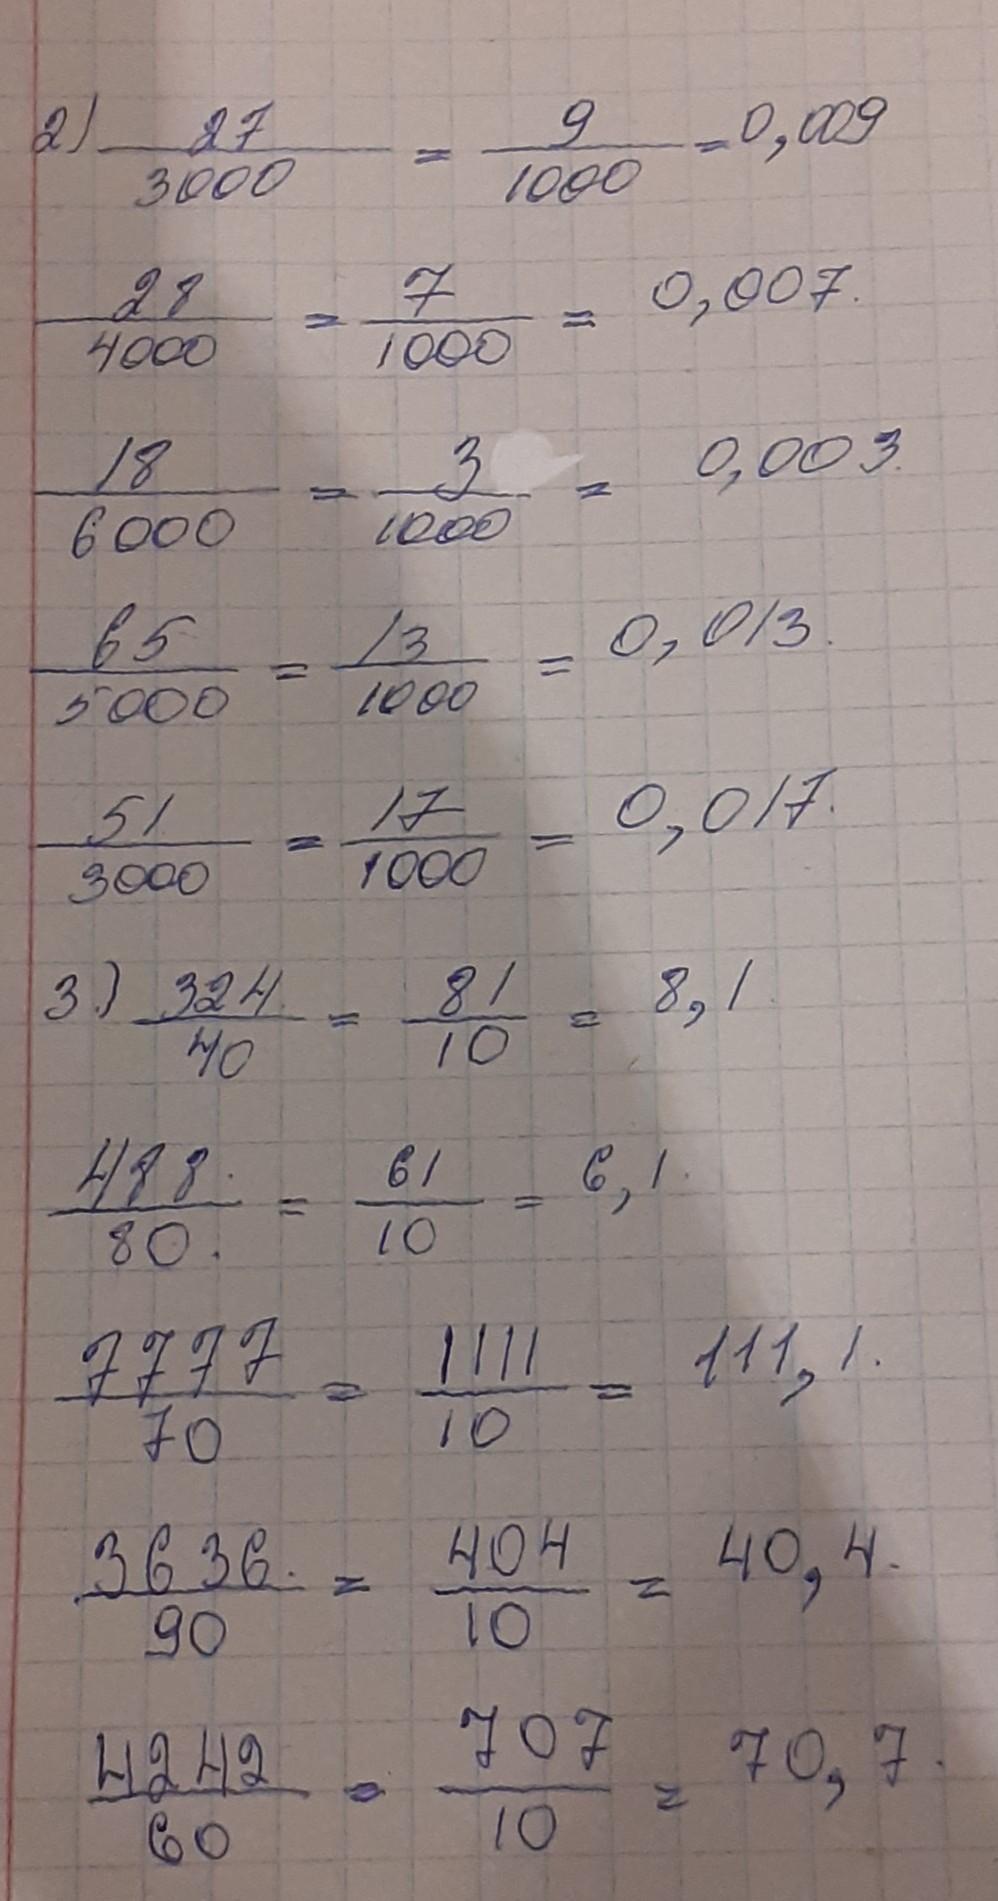 2) 27/3000 = 9/1000 = 0,009
28/4000 = 7/1000 = 0,007.
18/6000 = 3/1000 = 0,003.
65/5000 = 13/1000 = 0,013.
51/3000 = 17/1000 = 0,017.
3.) 324/40 = 81/10 = 8,1
488/80. = 61/10 = 6,1.
7777/70 = 1111/10 = 111,1.
3636./90 = 404/10 = 40,4.
4242/60 = 707/10 = 70,7.